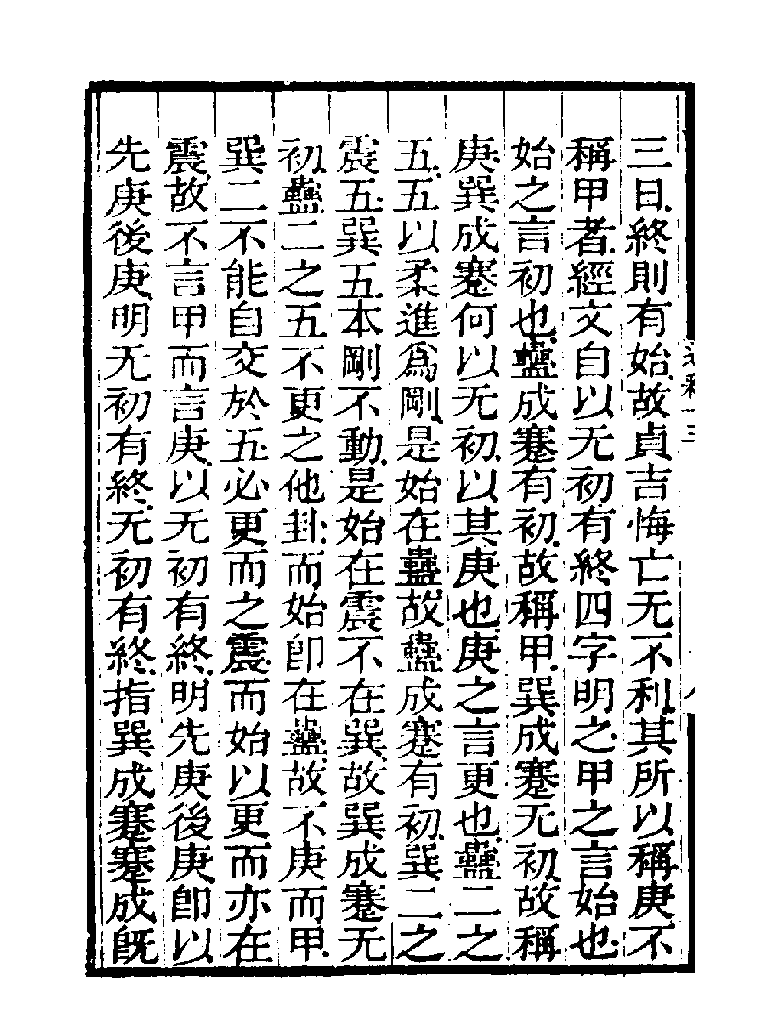 三日終則有始故貞吉悔亡无不利其所以稱庚不
稱甲者經文自以无初有終四字明之甲之言始也
始之言初也蠱成蹇有初故稱甲巽成蹇无初故稱
庚巽成蹇何以无初以其庚也庚之言更也蠱二之
五五以柔進爲剛是始在蠱故蠱成蹇有初巽二之
震五巽五本剛不動是始在震不在巽故巽成蹇无
初蠱二之五不更之他卦而始卽在蠱故不庚而甲
巽二不能自交於五必更而之震而始以更而亦在
震故不言甲而言庚以无初有終明先庚後庚卽以
先庚後庚明无初有終无初有終指巽成蹇蹇成旣